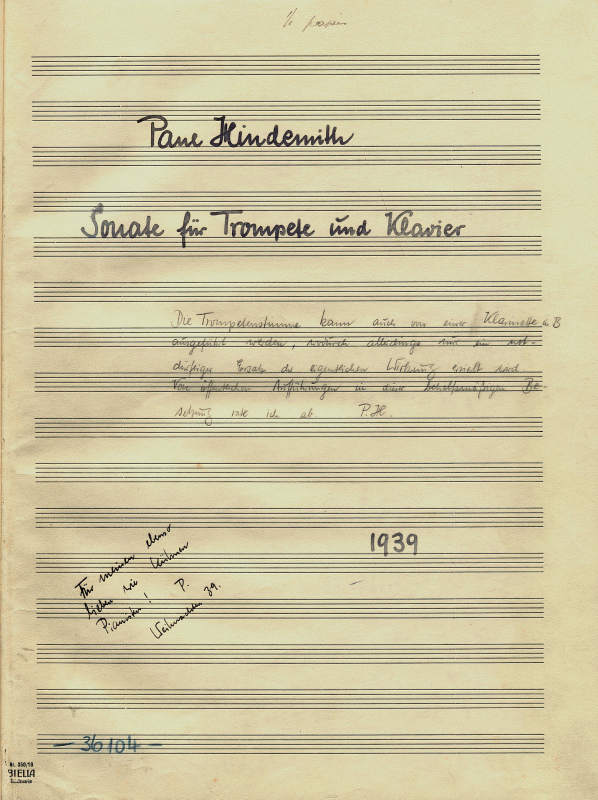 Paul Hindemith
Sonate für Trompete und Klavier
Die Trompetenstimme kann auch von einer Klarinette in B
ausgeführt werden, wodurch allerdings nur ein not-
dürftiger Ersatz der eigentlichen Wirkung erzielt wird.
Von öffentlichen Aufführungen in dieser behelfsmäßigen Be-
setzung rate ich ab. P.H.
1939
Für meinen ebenso
lieben wie kühnen
Pianisten! P.
Weihnachten 39.
— 36104 —
Nr. 350/16
BIELLA